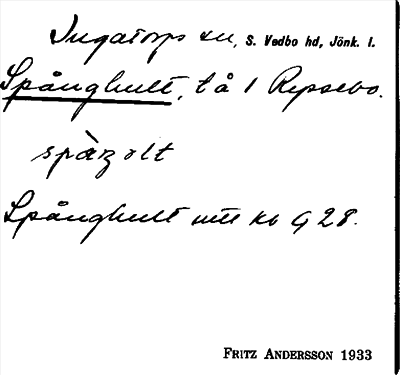 Ingatorps sn, S. Vedbo hd, Jönk. l.
Spånghult, t å 1 Repsebo.
spàŋolt
Spånghult utt kb G 28.
FRITZ ANDERSSON 1933